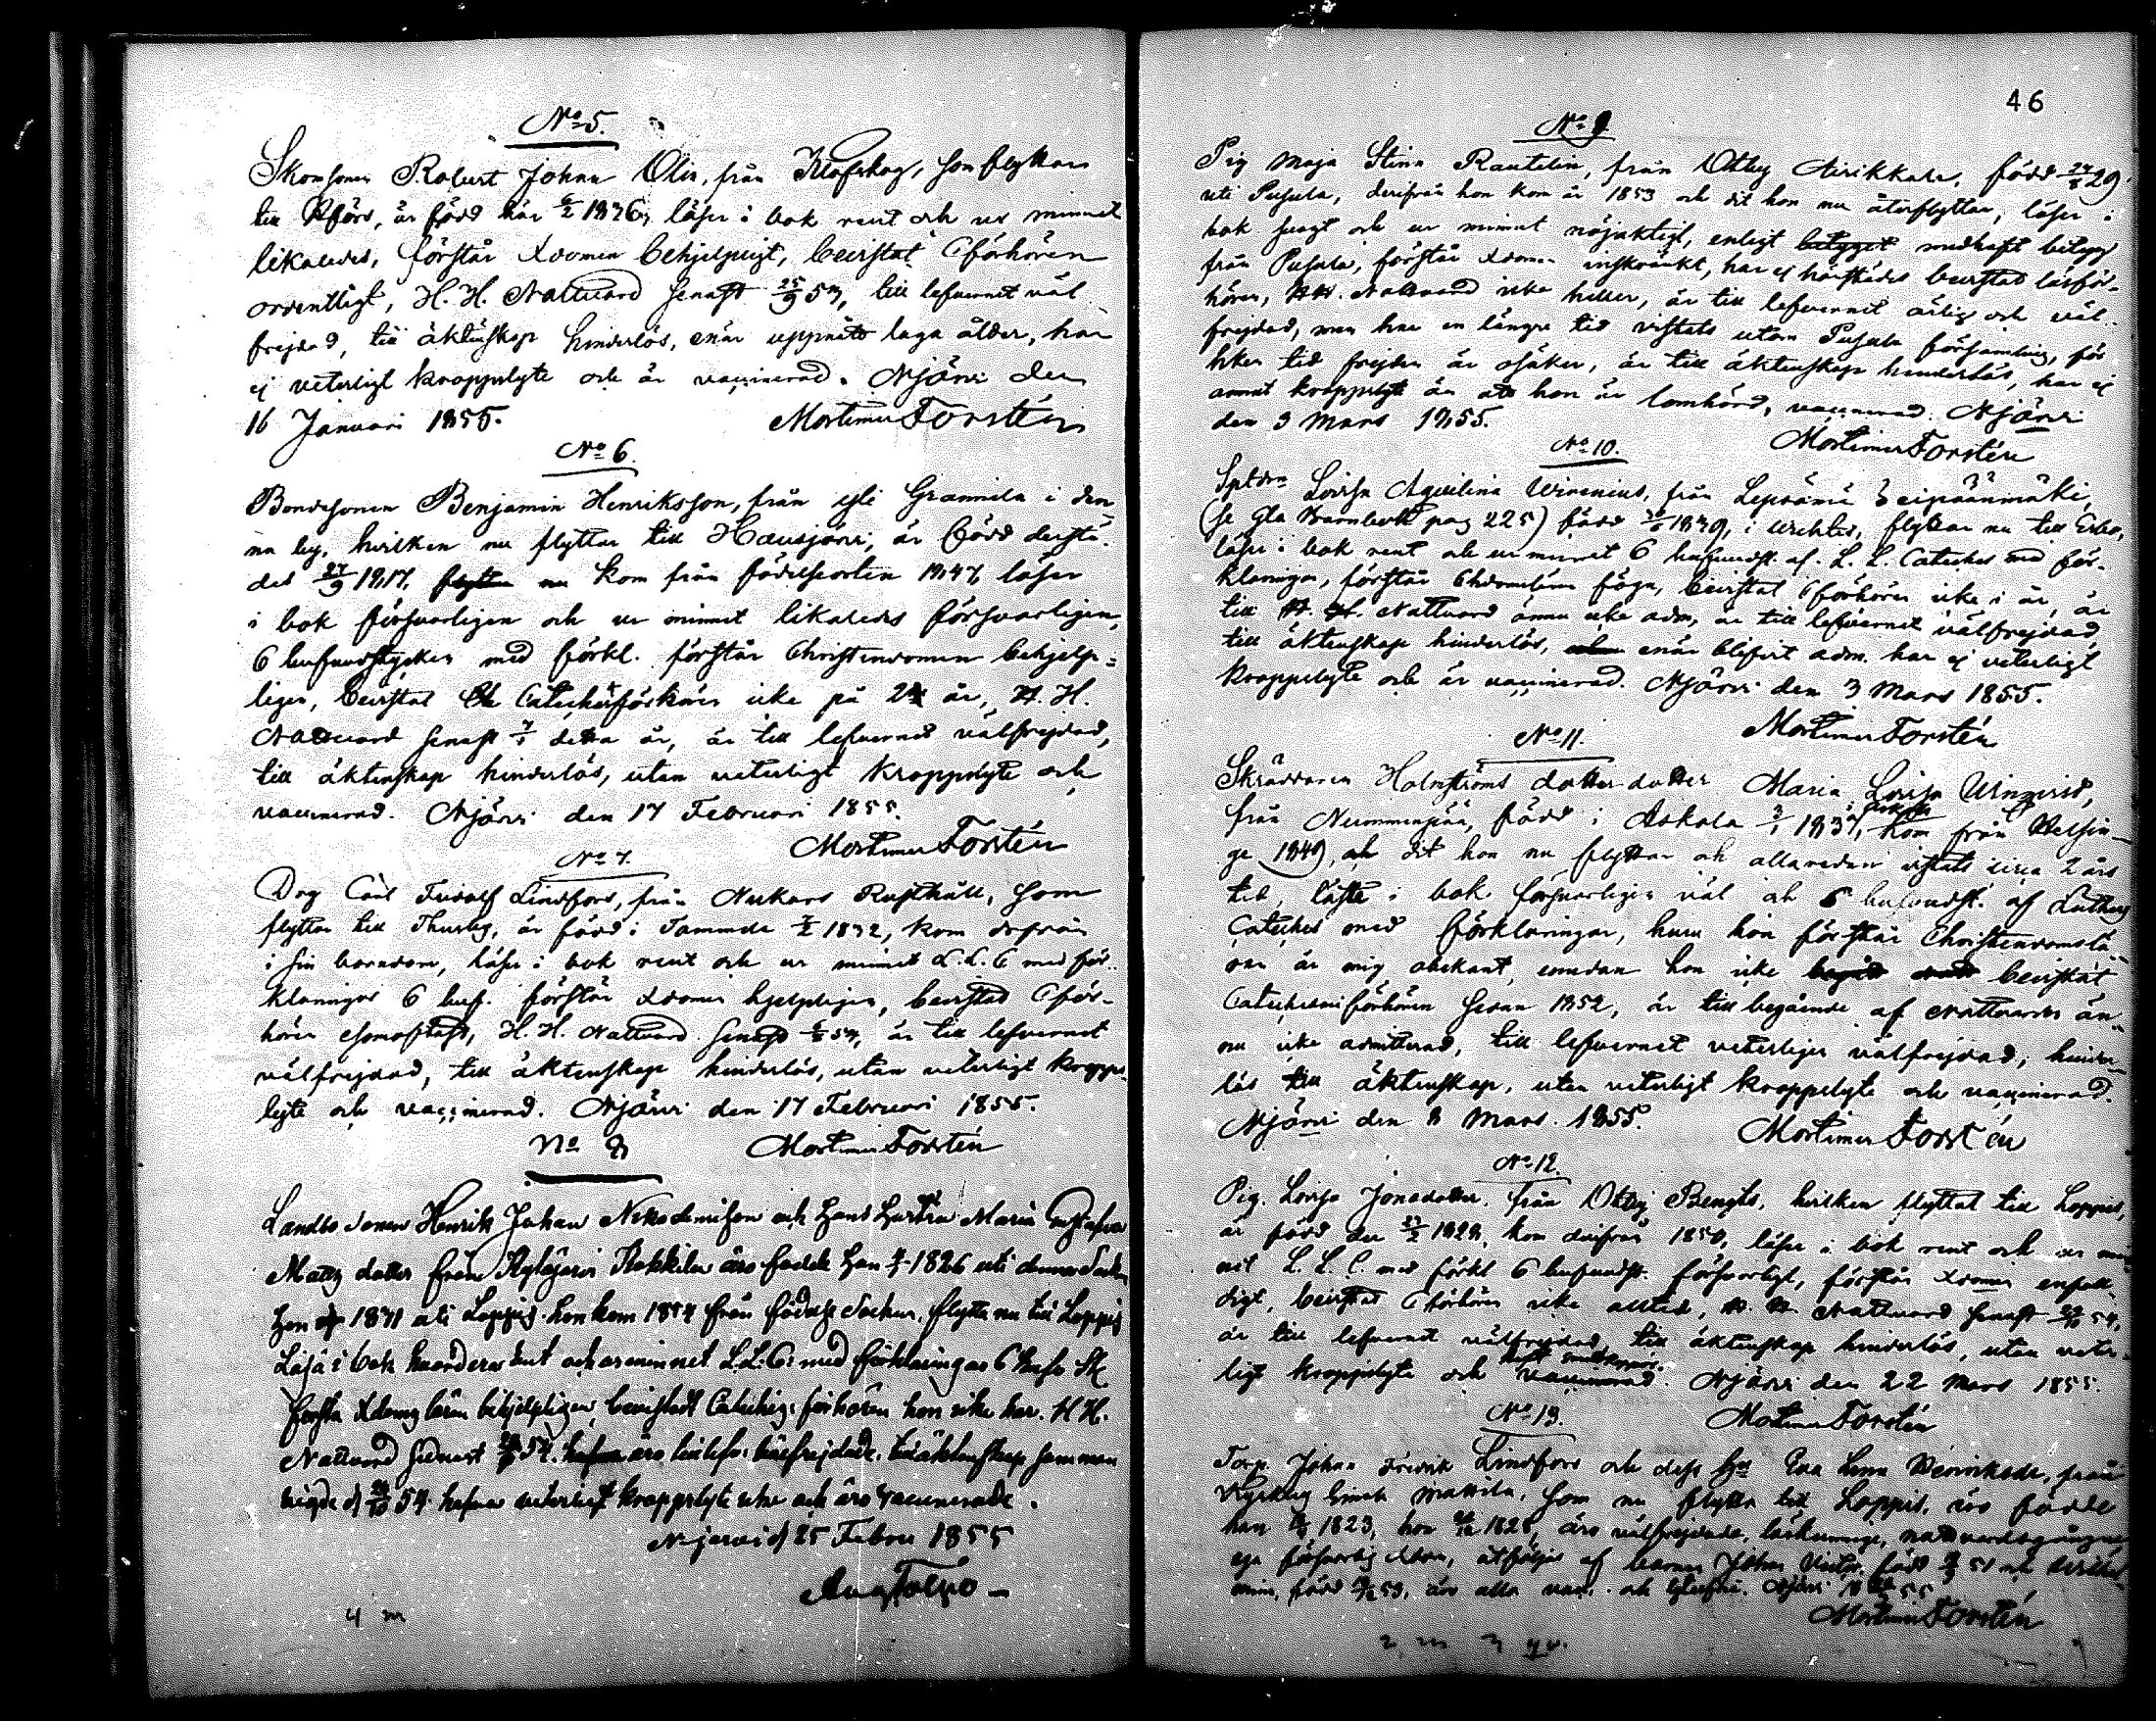 No 5.
Skomsonen Robert Johan Olin, från Klafskog, som flyttar
till Hfors, är född här 6/2 1836, läser i bok rent och ur minnet
likaledes, förstår Xdomen behjelpligt, bevistat Cförhören
ordentligt, H. H. Nattvard senast 25/9 54, till lefvernet väl
frejdad, till äktenskap hinderlös, enär uppnått laga ålder, har
ej veterligt kroppslyte och är vaccinerad. Njärvi den
16 Januari 1855. Mortimer Forstén
No 6.
Bondesonen Benjamin Henriksson, från Grannila i den
na by, hvilken nu flyttar till Hausjärvi, är född derstä-
des 27/9 1817, kom från födelseorten 1847, läser
i bok försvarligen och ur minnet likaledes försvarligen,
6 hufvudstycken med förkl. förstår Christendomen behjelp-
ligen, bevistat Catechesförhören icke på 2 år, H. H.
Nattvard senast detta år, är till lefvernet välfrejdad,
till äktenskap hinderlös, utan veterligt kroppslyte och
vaccinerad. Njärvi den 17 Februari 1855.
Mortimer Forstén
No 7.
Drg Carl Lindfors, från Nukars Rusthåll, som
flyttar till Thusby, är född i Tammela 1832, kom
i sin barndom, läser i bok rent och ur minnet L. L. C med för-
klaringar 6 huf. förstår Xdomen hjelpligen, bevistat Cför-
hören esomoftast, H. H. Nattvard senast 54, är till lefvernet
välfrejdad, till äktenskap hinderlös, utan veterligt kropps-
lyte och vaccinerad. Njärvi den 17 Februari 1855.
No 8 Mortimer Forstén
Landbo sonen Henrik Johan Nikodemison och Hans Hustru Maria
Matts dotter från äro födde Han 1826 uti denna Socken
Hon 1831 uti Loppis. hon kom 1854 från födelse Socknen, flytta nu till Loppis
Läsa i bok och ur minnet L.L.C: med förklaringar 6 hufv. St
förstå Xdoms läran behjelpligen, bevistadt Catechis: förhören hon icke här. H H.
Nattvard sednast 54. äro till lefv: välfrejdade. till äktenskap samman
vigde d 26/10 54. hafva veterligt kroppslyte icke och äro vaccinerade.
N-järvi d 25 Febru 1855
4 m
46
No 9.
Pig Maja Stina Rautelin, från Ottby född 24/8 29
uti Pusula, derifrån hon kom år 1853 och dit hon nu återflyttar, läser i
bok svagt och ur minnet nöjaktigt, enligt betyget medhaft betyg
från Pusula, förstår Xdomen inskränkt, har ej härstädes bevistat läsför-
hören, H.H. Nattvard icke heller, är till lefvernet ärlig och väl-
frejdad, men har en längre tid vistats utom Pusula församling, för
hken tid frejden är osäker, är till äktenskap hinderlös, har ej
annat kroppslyte än att hon är lomhörd, vaccinerad. Njärvi
den 3 Mars 1855. Mortimer Forstén
No 10.
Lovisa Aqvilina Wirenius, från Lepsämä
(se gla Barnbok pag 225) född 1839, i Wichtis, flyttar nu till Esbo,
läser i bok rent och ur minnet 6 hufvudst. af. L. L. Cateches med för-
klaringar, förstår Chrdomen föga, bevistat Cförhören icke i år, är
till H. H. Nattvard ännu icke adm, är till lefvernet välfrejdad,
till äktenskap hinderlös, enär blifvit adm. har ej veterligt
kroppslyte och är vaccinerad. Njärvi den 3 Mars 1855.
Mortimer Forstén
No 11.
Skräddaren Holmströms dotter dotter Maria Lovisa
från Nummenpää, född i Askola 3/1 1837, kom från Helsin-
ge 1849, och dit hon nu flyttar och allaredan vistats circa 2 års
tid, läste i bok försvarligen väl och 6 hufvudst. af Luthers
Catechis med förklaringar, huru hon förstår Christendomslä-
ran är mig obekant, emedan hon icke bevistat
Catechesmiförhören sedan 1852, är till begående af Nattvarden än-
nu icke admitterad, till lefvernet veterligen välfrejdad, hinder-
lös till äktenskap, utan veterligt kroppslyte och vaccinerad.
Njärvi den 8 Mars. 1855. Mortimer Forstén
No 12.
Pig. Lovisa Jonasdotter. från Ottby Bengts, hvilken flyttat till Loppis,
är född der 1828, kom derifrån 1850, läser i bok rent och ur min
net L. L. C. med förkl 6 hufvudst. försvarligt, förstår Xdomen enfal-
digt, bevistat Cförhören icke alltid, H. H. Nattvard senast 54,
är till lefvernet välfrejdad, till äktenskap hinderlös, utan veter-
ligt kroppslyte och haft smittkoppor. Njärvi den 22 Mars 1855.
No 13. Mortimer Forstén
Torp. Johan Fredrik Lindfors och dess hu Eva Lena Henriksdr, från
Mattila, som nu flytta till Loppis, äro födde
han 1823, hon 1828, äro välfrejdade, läskunnige, nattvardsgångne
ega försvarlig Xdom, åtföljas af barnen Johan född 51 och
född 53, äro alla vacc. och lytesfrie. Njärvi 55
Mortimer Forstén
2 m 3 qv.